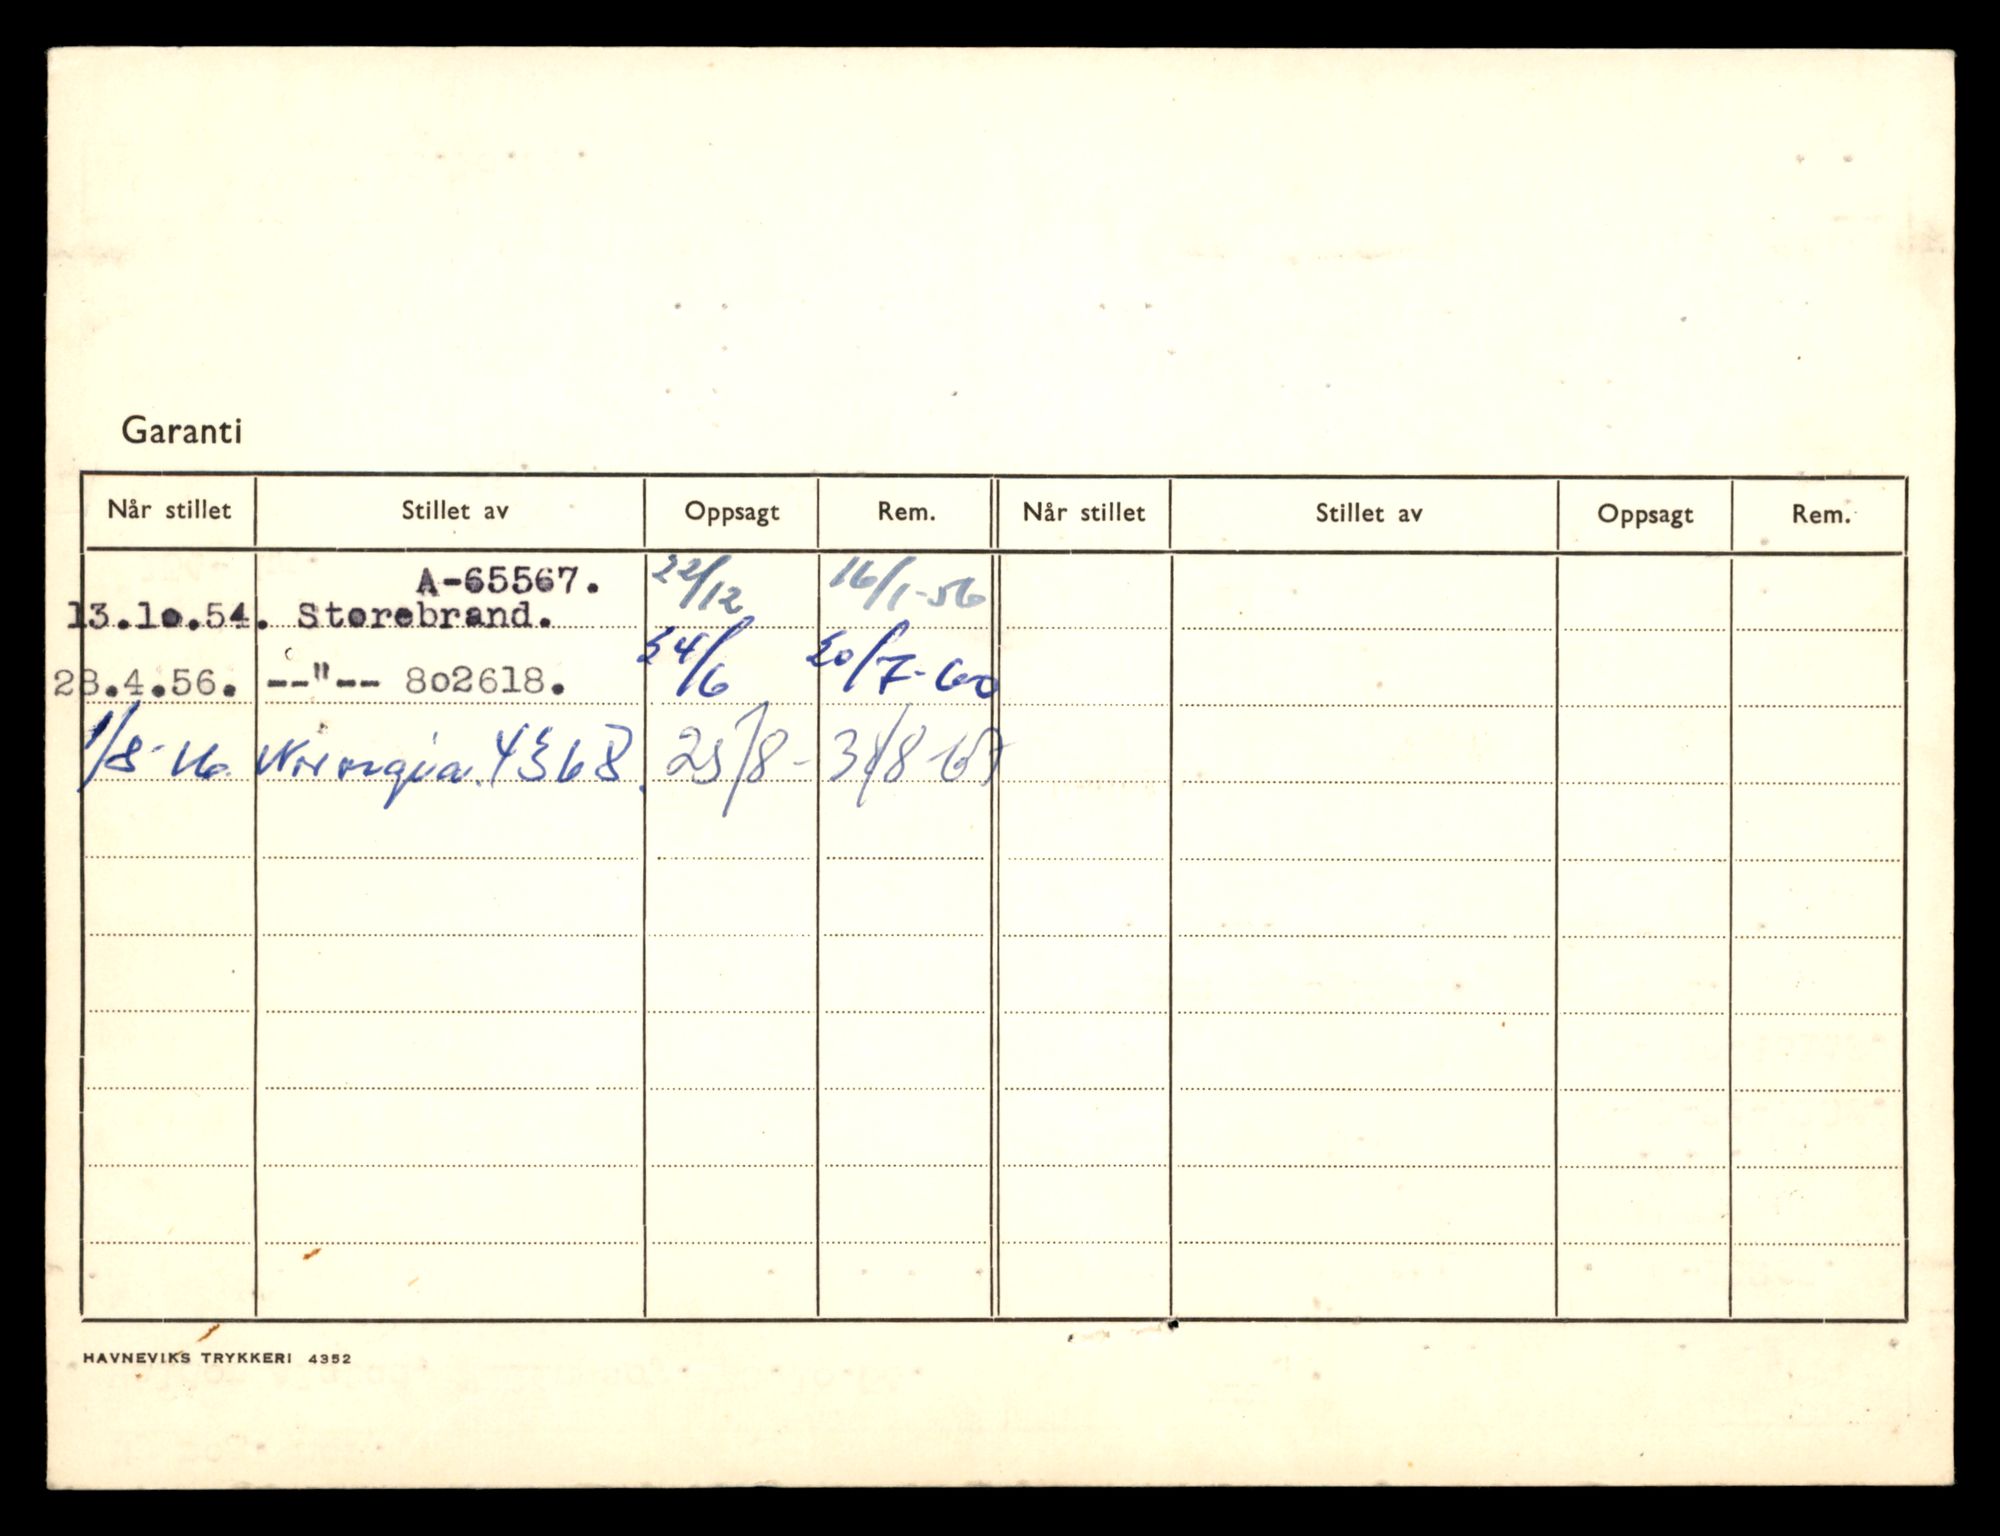 Garanti
Når stillet Stillet av Oppsagt Rem. Når stillet Stillet av Oppsagt Rem.
A-65567. 22/12 16/1-56
13.10.54. Storebrand.
28.4.56. --"-- 802618. 24/6 20/7-60
1/8- Norvegia. 25/8 - 31/8-67
HAVNEVIKS TRYKKERI 4352